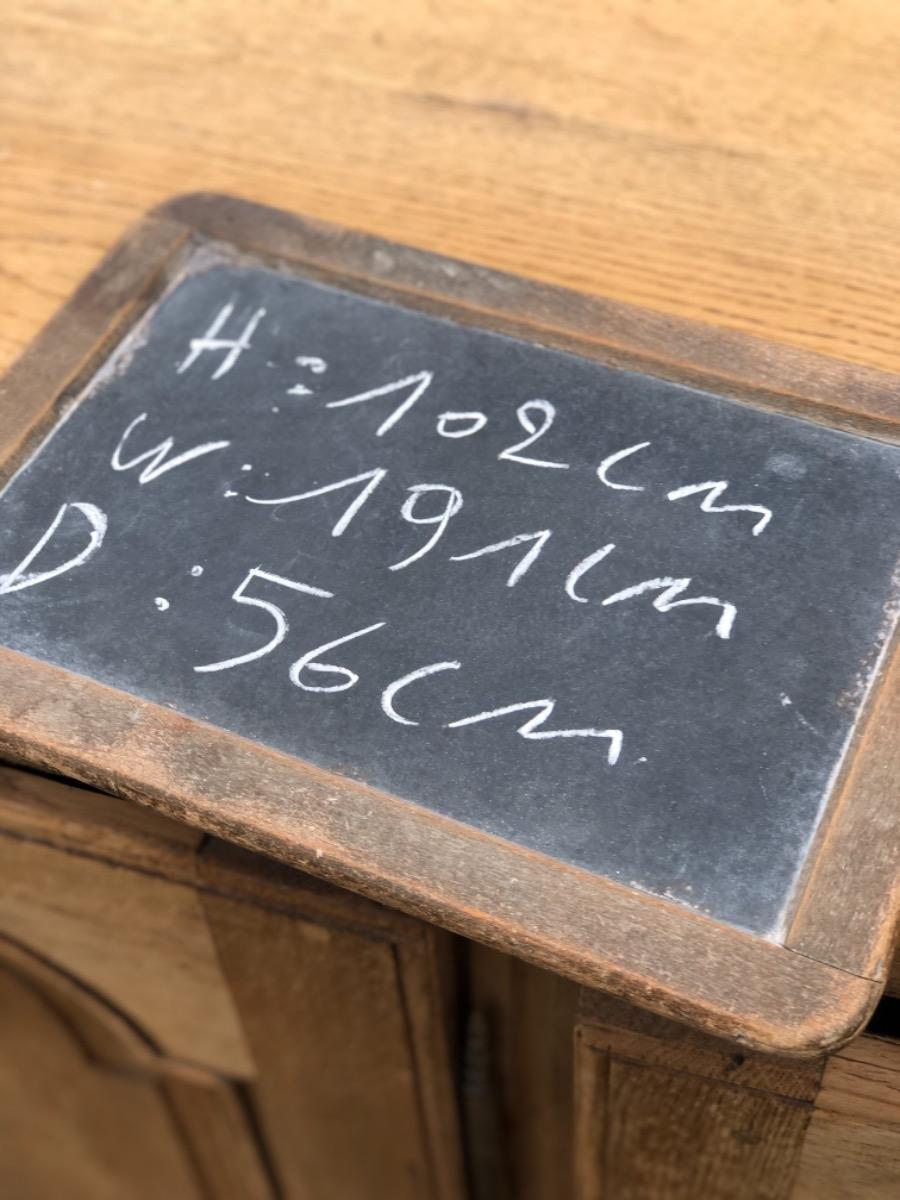 H: 102cm
W: 191cm
D: 56cm